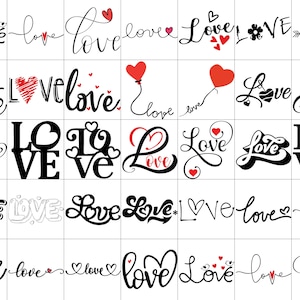 love
love
love
Love
LOVE
LOVE
love
love
love
Love
LOVE
LOVE
Love
Love
Love
LOVE
Love
Love
LOVE
love
love
love
love
Love
love